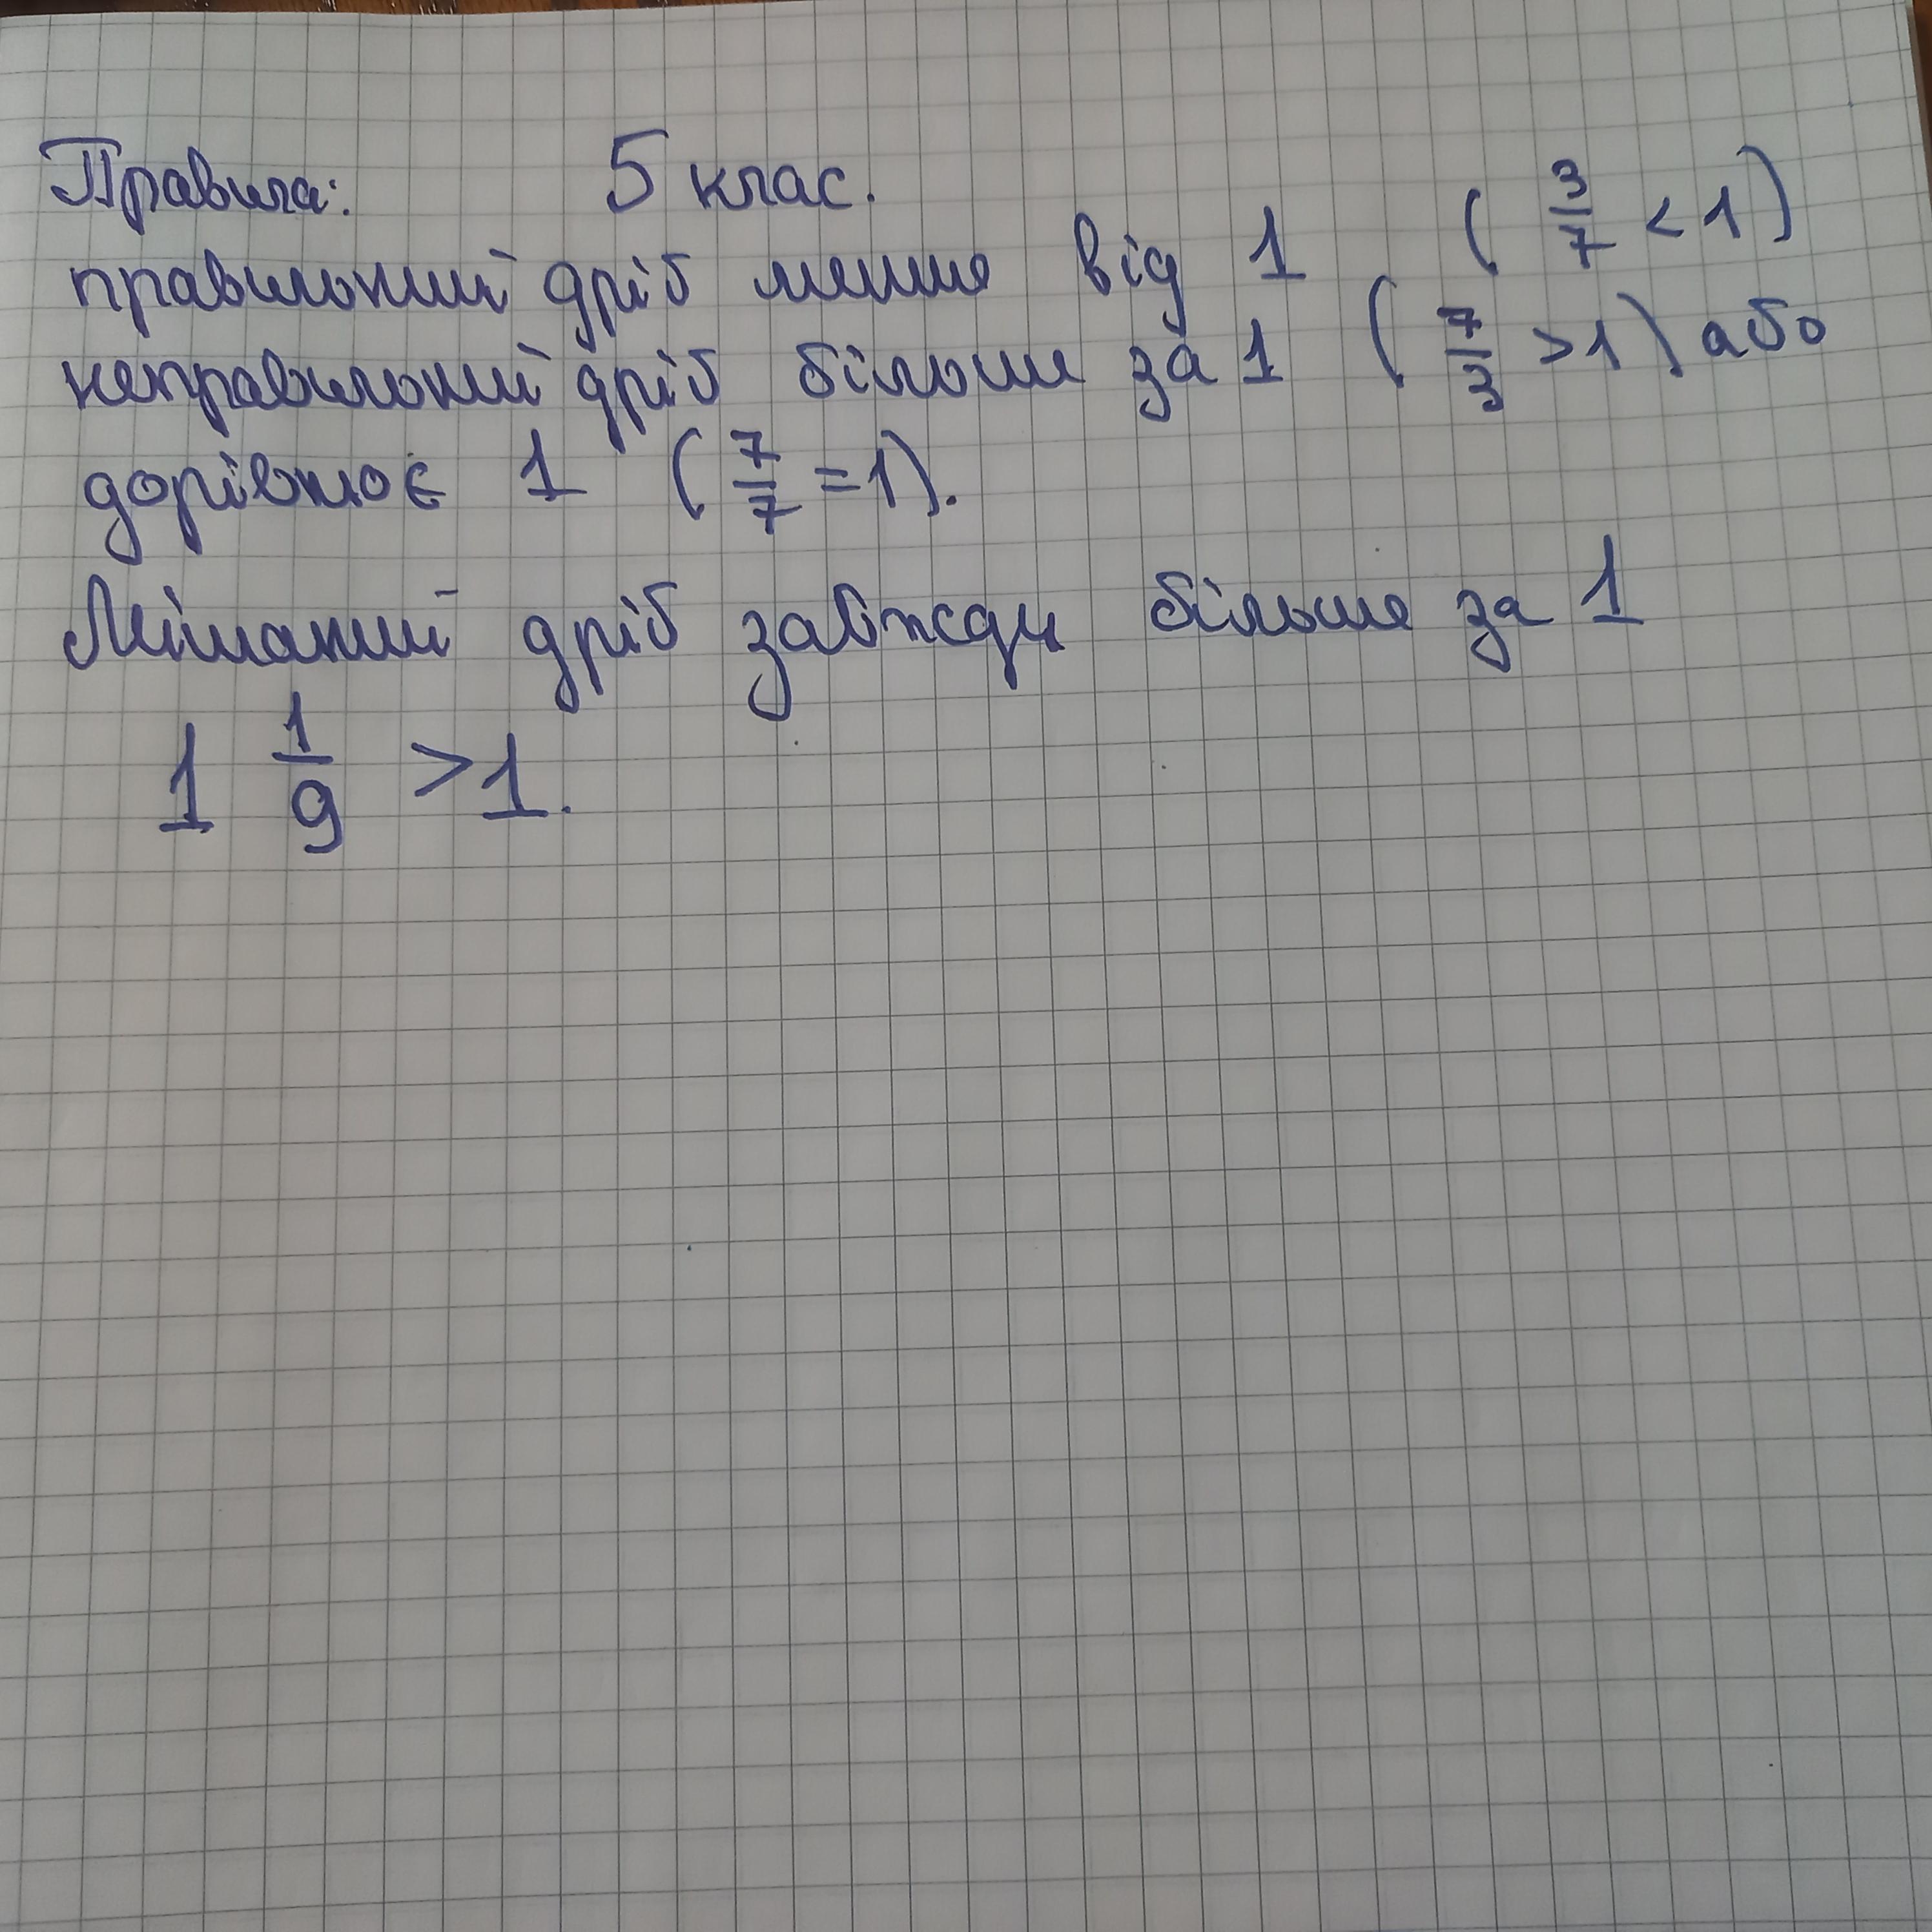 Правила: 5 клас.
правильний дріб менше від 1 ( 3/7 < 1 )
неправильний дріб більше за 1 ( 7/3 > 1 ) або
дорівнює 1 ( 7/7 = 1 ).
Мішаний дріб завжди більше за 1
1 1/9 > 1.